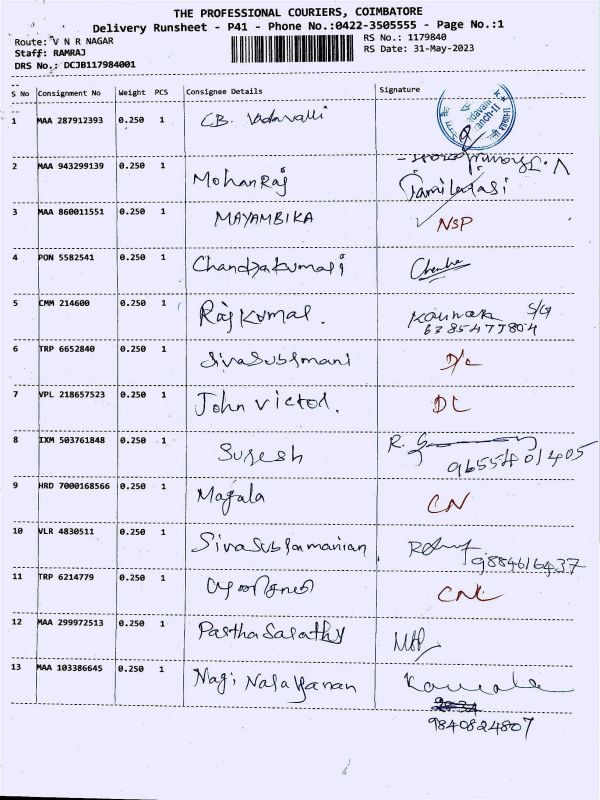 THE PROFESSIONAL COURIERS, COIMBATORE
Delivery Runsheet - P41 - Phone No.:0422-3505555 - Page No.:1
Route: V N R NAGAR
RS No.: 1179840
Staff: RAMRAJ
RS Date: 31-May-2023
DRS No.: DCJB117984001
S No Consignment No Weight PCS Consignee Details Signature
1 MAA 287912393 0.250 1 CB. Vadavalli
2 MAA 943299139 0.250 1 MohanRaj Tamilarasi
3 MAA 860011551 0.250 1 MAYAMBIKA NSP
4 PON 5582541 0.250 1 Chandrakumari
5 CMM 214600 0.250 1 Rajkumar. S/G
6 TRP 6652840 0.250 1 Sivasubramani D/L
7 VPL 218657523 0.250 1 John victor. DL
8 IXM 503761848 0.250 1 Suresh R.
9655401405
9 HRD 7000168566 0.250 1 Magala CN
10 VLR 4830511 0.250 1 Sivasubramanian
9884616437
11 TRP 6214779 0.250 1 CNL
12 MAA 299972513 0.250 1 Parthasarathy
13 MAA 103386645 0.250 1 Nagi Narayanan Kamala
9840824807